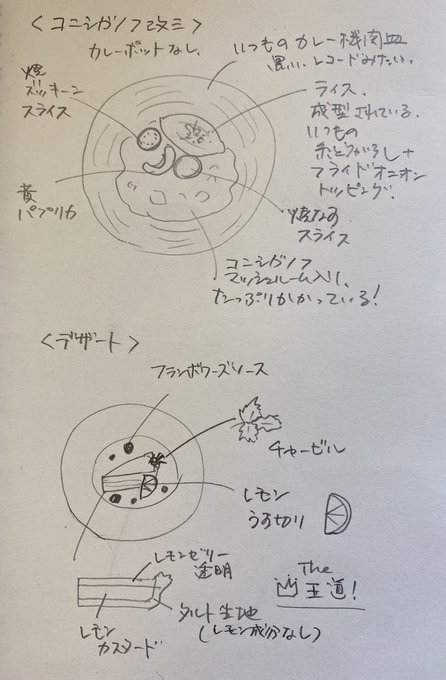 <コニシガノフ改ミ>
カレーポットなし。
いつものカレー機関皿
黒い、レコードみたい。
焼
ズッキーニ
スライス
ライス。
成型されている。
いつもの
赤とうがらし+
フライドオニオン
トッピング。
黄
パプリカ
焼なす
スライス
コニシガノフ
マッシュルーム入り、
たっぷりかかっている!
<デザート>
フランボワーズソース
チャービル
レモン
うす切り
レモンゼリー
透明
The
王道!
タルト生地
(レモン成分なし)
レモン
カスタード